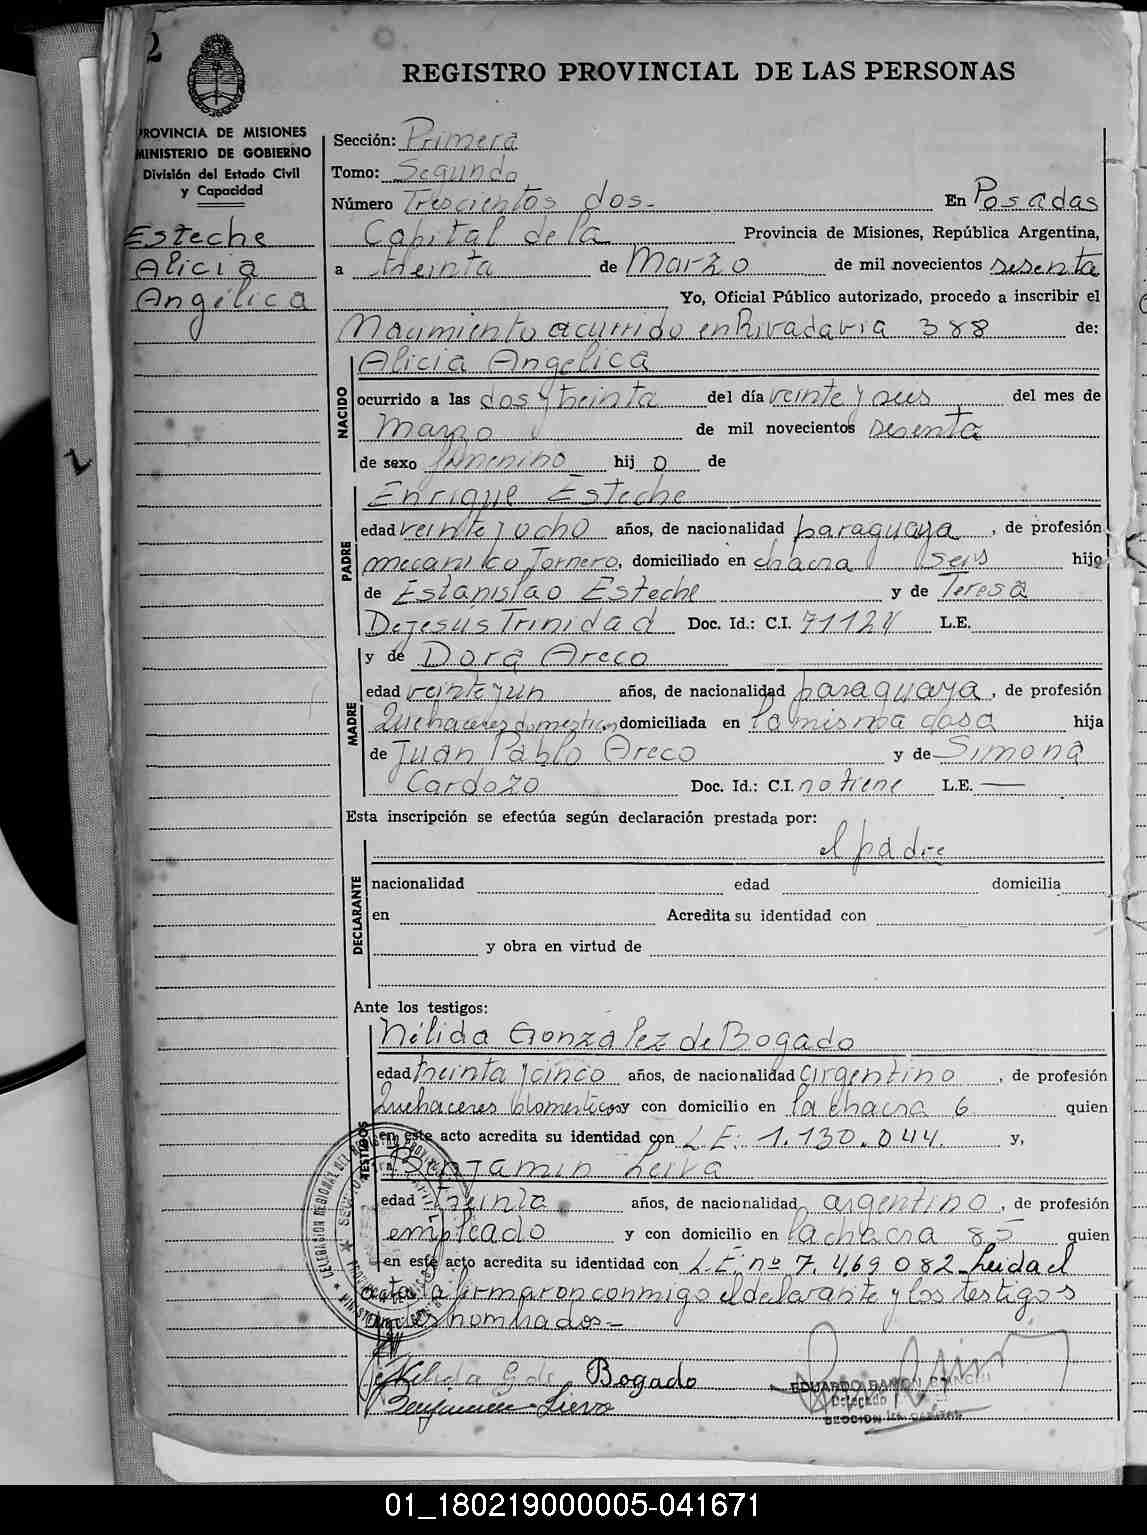 2
REGISTRO PROVINCIAL DE LAS PERSONAS
PROVINCIA DE MISIONES
MINISTERIO DE GOBIERNO
División del Estado Civil
y Capacidad
Esteche
Alicia
Angélica
Sección: Primera
Tomo: Segundo
Número Trescientos dos- En Posadas
Capital de la Provincia de Misiones, República Argentina,
a treinta de Marzo de mil novecientos sesenta
Yo, Oficial Público autorizado, procedo a inscribir el
Nacimiento ocurrido en Rivadavia 388 de:
NACIDO
Alicia Angelica
ocurrido a las dos y treinta del día veinte y seis del mes de
Marzo de mil novecientos sesenta
de sexo femenino hij o de
PADRE
Enrique Esteche
edad veinte y ocho años, de nacionalidad paraguaya, de profesión
mecanico Tornero, domiciliado en chacra seis hijo
de Estanislao Esteche y de Teresa
Dejesús Trinidad Doc. Id.: C.I. 71124 L.E.
MADRE
y de Dora Areco
edad veinte y un años, de nacionalidad paraguaya, de profesión
Quehaceres domesticos, domiciliada en la misma casa hija
de Juan Pablo Areco y de Simona
Cardozo Doc. Id.: C.I. no tiene L.E. —
Esta inscripción se efectúa según declaración prestada por:
DECLARANTE
el padre
nacionalidad edad domicilia
en Acredita su identidad con
y obra en virtud de
Ante los testigos:
TESTIGOS
Nélida Gonzalez de Bogado
edad treinta y cinco años, de nacionalidad argentino, de profesión
Quehaceres domesticos y con domicilio en la chacra 6 quien
en este acto acredita su identidad con L.E: 1.130.044. y,
Benjamin Leiva
edad treinta años, de nacionalidad argentino, de profesión
empleado y con domicilio en la chacra 85 quien
en este acto acredita su identidad con L.E: nº 7.469.082 Leida el
acta, la firmaron conmigo el declarante y los testigos
nombrados=
Nelida G de Bogado
Benjamin Leiva
EDUARDO RAMON
Delegado
SECCION 1ra. CAPITAL
01_180219000005-041671